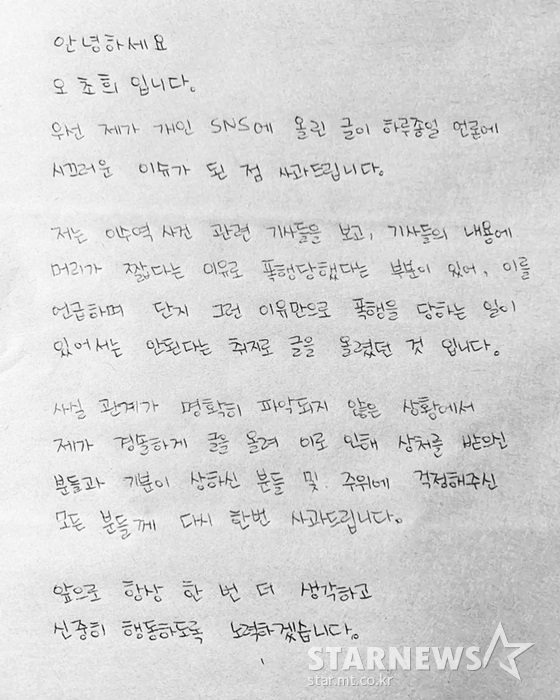 안녕하세요
오초희 입니다.
우선 제가 개인 SNS에 올린 글이 하루종일 언론에
시끄러운 이슈가 된 점 사과드립니다.
저는 이수역 사건 관련 기사들을 보고, 기사들의 내용에
머리가 짧다는 이유로 폭행당했다는 부분이 있어, 이를
언급하며 단지 그런 이유만으로 폭행을 당하는 일이
있어서는 안된다는 취지로 글을 올렸던 것 입니다.
사실 관계가 명확히 파악되지 않은 상황에서
제가 경솔하게 글을 올려 이로 인해 상처를 받으신
분들과 기분이 상하신 분들 및 주위에 걱정해주신
모든 분들께 다시 한번 사과드립니다.
앞으로 항상 한 번 더 생각하고
신중히 행동하도록 노력하겠습니다.
STARNEWS
star.mt.co.kr